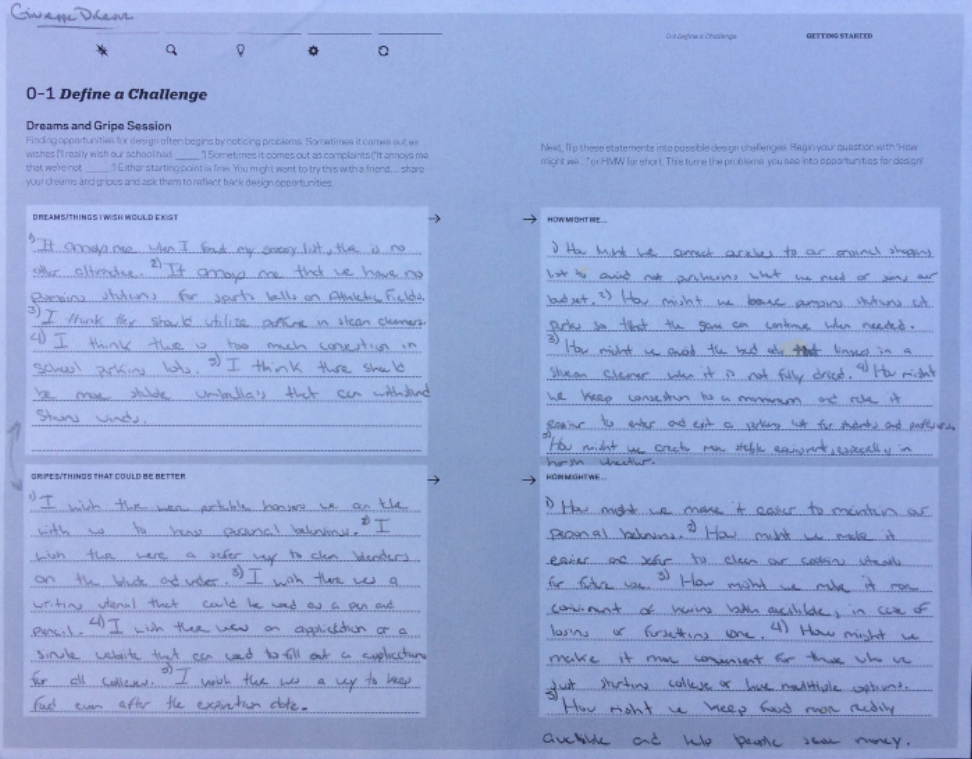 0-1 Define a Challenge
GETTING STARTED
0-1 Define a Challenge
Dreams and Gripe Session
Finding opportunities for design often begins by noticing problems. Sometimes it comes out as
wishes ("I really wish our school had _____ ") Sometimes it comes out as complaints ("It annoys me
that we're not _____ ") Either starting point is fine. You might want to try this with a friend... share
your dreams and gripes and ask them to reflect back design opportunities.
Next, flip these statements into possible design challenges. Begin your question with "How
might we..." or HMW for short. This turns the problems you see into opportunities for design!
DREAMS/THINGS I WISH WOULD EXIST
1) It annoys me when I my list, there is no
other alternative. 2) It annoys me that we have no
stations for sports balls on Athletic Fields.
3) I think they should utilize in steam cleaners.
4) I think there is too much congestion in
school parking lots. 5) I think there should
be more stable umbrella's that can withstand
Strong winds.
HOW MIGHT WE...
1) How might we connect to our original shopping
list to avoid not purchasing what we need or our
budget. 2) How might we stations at
parks so that the game can continue when needed.
3) How might we avoid the bad that in a
steam cleaner when it is not fully dried. 4) How might
we keep congestion to a minimum and make it
easier to enter and exit a parking lot for students and
5) How might we create more stable equipment, especially in
harsh wheather.
GRIPES/THINGS THAT COULD BE BETTER
1) I wish there were portable we can take
with us to personal belongings. 2) I
wish there were a safer way to clean blenders
on the blade and under. 3) I wish there was a
writing utensil that could be used as a pen and
pencil. 4) I wish there was an application or a
single website that can used to fill out a application
for all colleges. 5) I wish there was a way to keep
food even after the expiration date.
HOW MIGHT WE...
1) How might we make it easier to maintain our
personal belongings. 2) How might we make it
easier and safer to clean our cooking utensils
for future use. 3) How might we make it more
convinient of having both availible, in case of
losing or forgetting one. 4) How might we
make it more convenient for those who are
just starting college or have multiple options.
5) How might we keep food more readily
availible and help people save money.